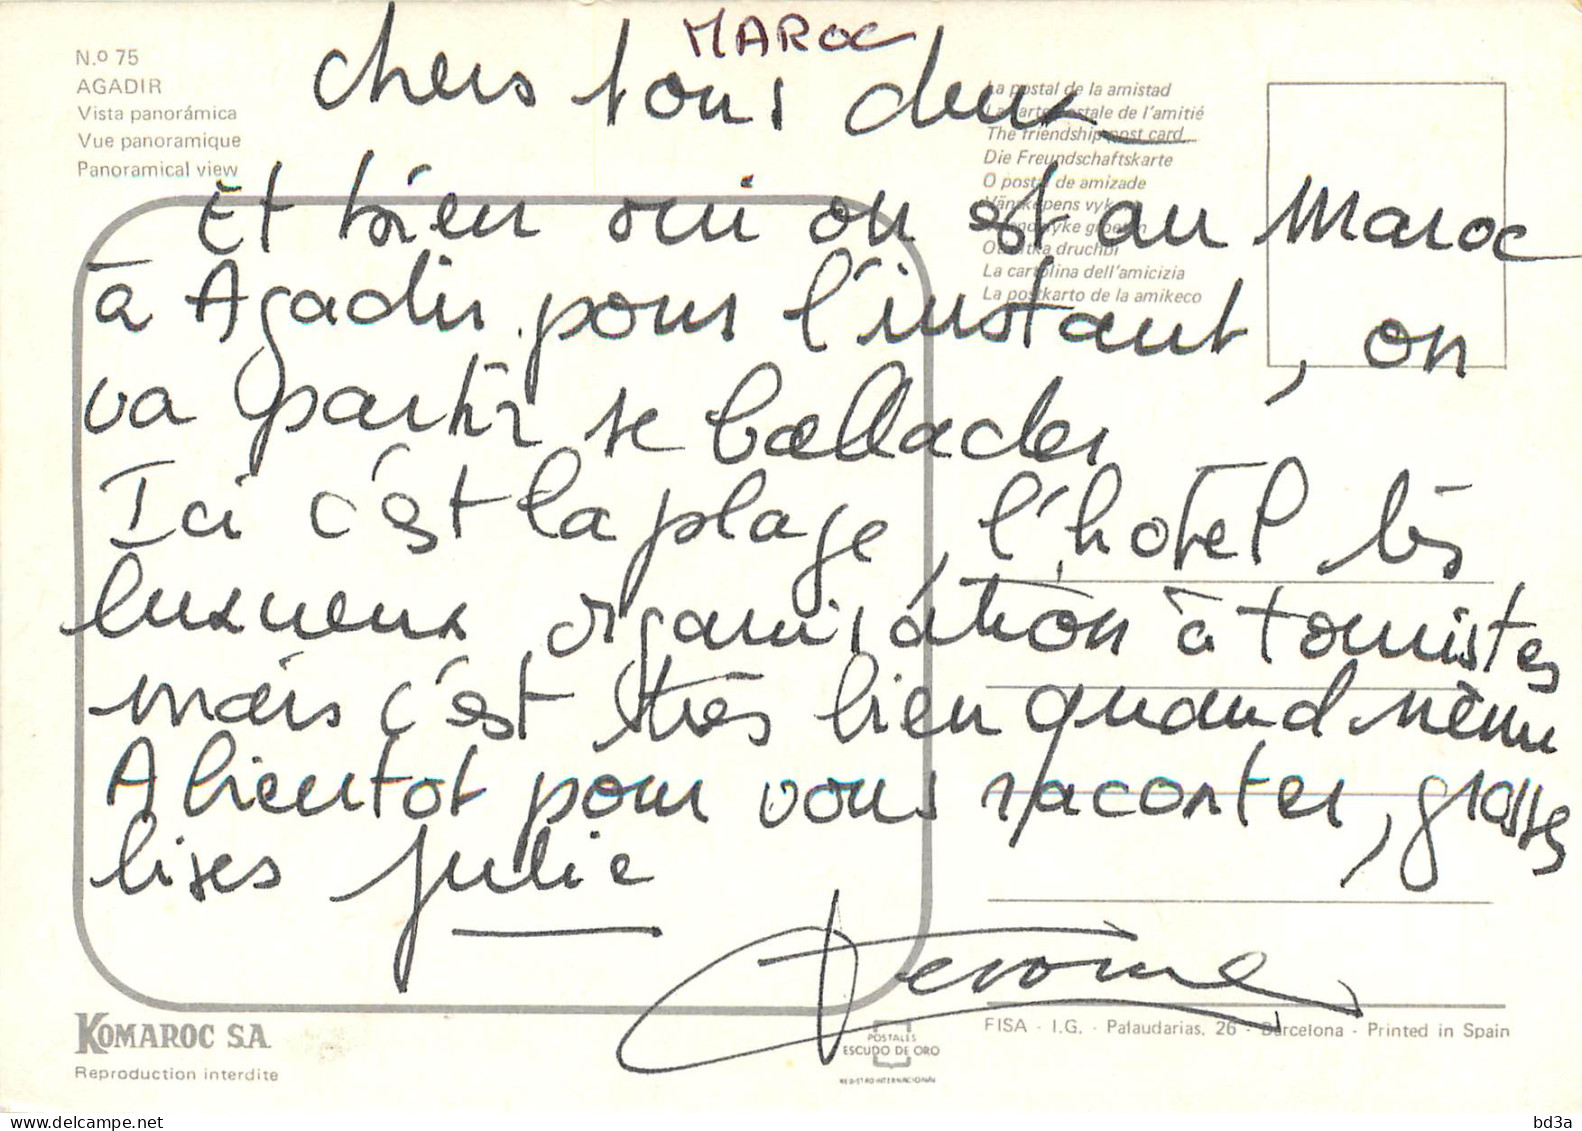 MAROC
N.º 75
AGADIR
Vista panorámica
Vue panoramique
Panoramical view
La postal de la amistad
La carte postale de l'amitié
The friendship post card
Die Freundschaftskarte
O postal de amizade
La cartolina dell'amicizia
La postkarto de la amikeco
Chers tous deux
Et bien oui on est au Maroc
à Agadir pour l'instant, on
va partir se ballader
Ici c'est la plage, l'hotel très
luxueux, organisation à touristes
mais c'est très bien quand même
A bientot pour vous raconter, grosses
bises Julie
Jerôme
KOMAROC S.A.
Reproduction interdite
POSTALES
ESCUDO DE ORO
REGISTRO INTERNACIONAL
FISA - I.G. - Palaudarias, 26 - Barcelona - Printed in Spain
delcampe.net
bd3a